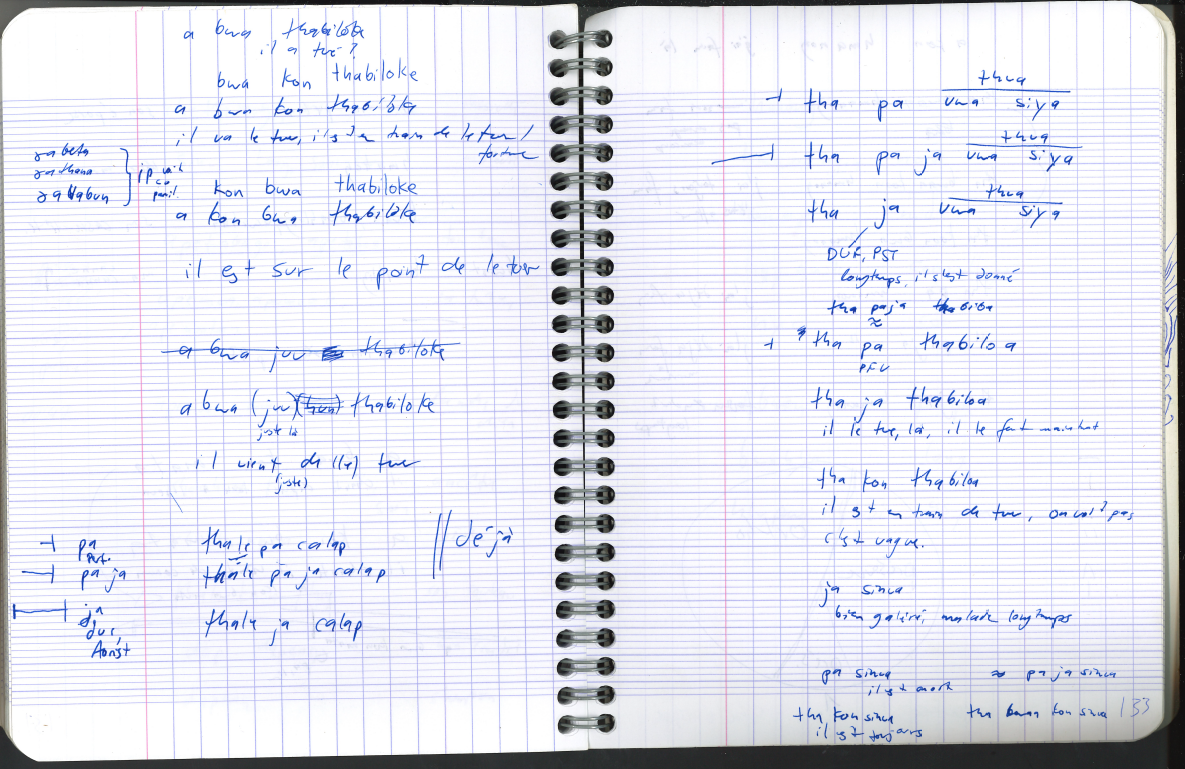 a bwa thabiloke
il a tué ?
bwa kon thabiloke
a bwa kon thabiloke
il va le tuer, il est en train de le tuer /
zabeta
zathana
zaWabun
kon bwa thabiloke
a kon bwa thabiloke
il est sur le point de le tuer
a bwa juu thabiloke
a bwa (juu) (thua) thabiloke
juste là
il vient de (le) tuer
(juste)
pa thale pa calap || déjà
pa ja thale pa ja calap
ja thale ja calap
dur,
Aorist
thua
tha pa uwa siya
thua
tha pa ja uwa siya
thua
tha ja uwa siya
DUR, PST
longtemps, il s'est donné
tha paja thabiloa
≈
tha pa thabiloa
PFV
tha ja thabiloa
il le tue, là, il le fait maintnat
tha kon thabiloa
il est en train de tuer, on voit pas
c'est vague.
ja sinua
bien galéré, malade longtemps
pa sinua ≈ pa ja sinua
il est mort
tha kon sinua tha kon sinua 133
il est toujours